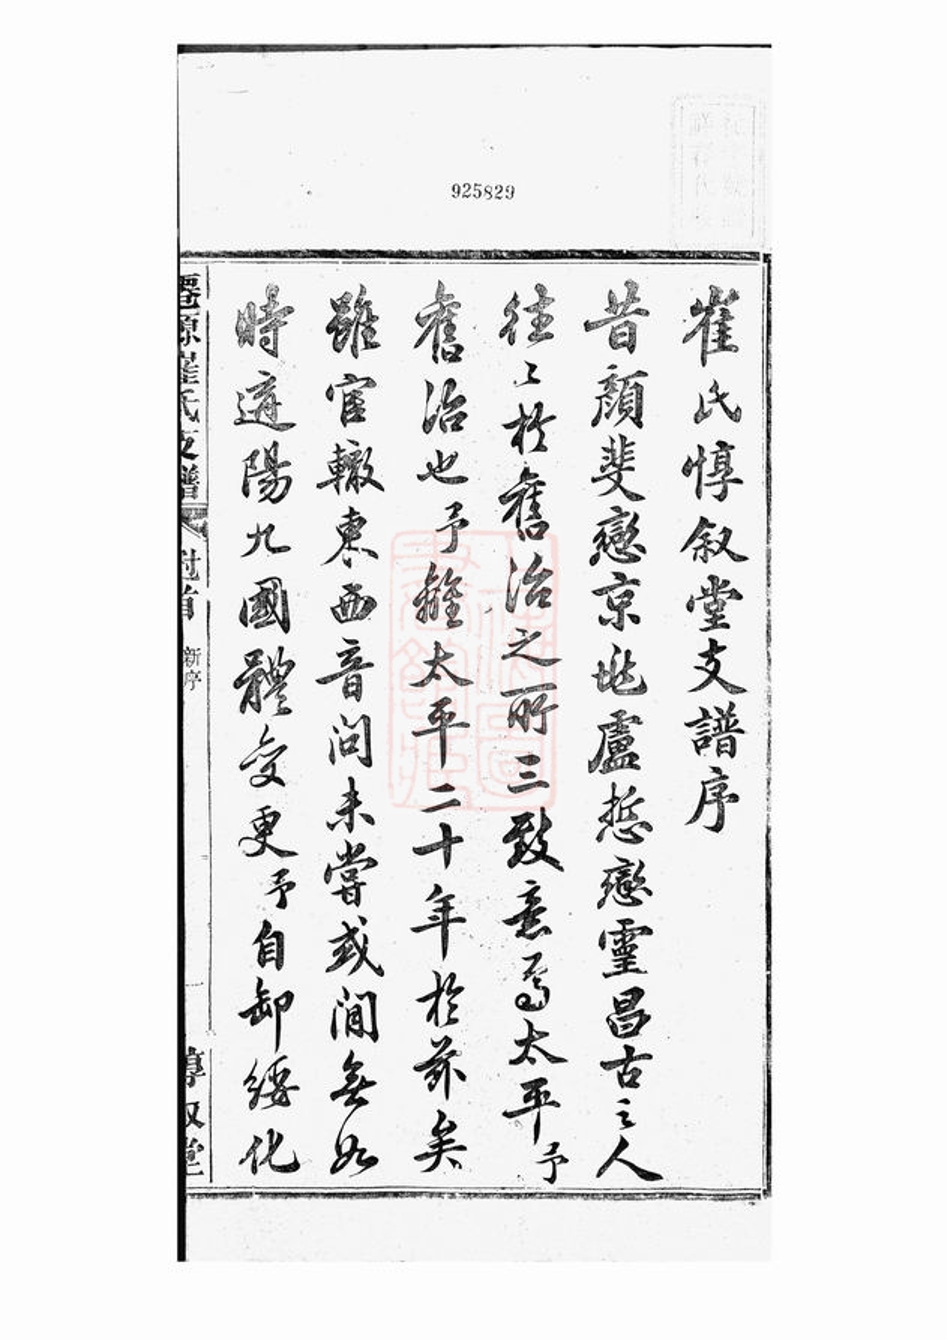 925829
崔氏惇叙堂支譜序
昔顏斐戀京兆盧悊戀靈昌古之人
往〻於舊治之所三致意焉太平予
舊治也予離太平二十年於茲矣
雖官轍東西音問未嘗或間無如
時遊陽九國體變更予自卸綏化
崔氏支譜
首
新序
惇叙堂